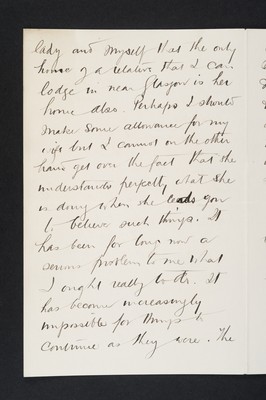 lady and myself that the only
home of a relative that I can
lodge in near Glasgow is her
home also. Perhaps I should
make some allowance for my
wife but I cannot on the other
hand get over the fact that she
understands perfectly what she
is doing when she leads you
to believe such things. It
has been for long now a
serious problem to me what
I ought really to do. It
has become increasingly
impossible for things to
continue as they were. The